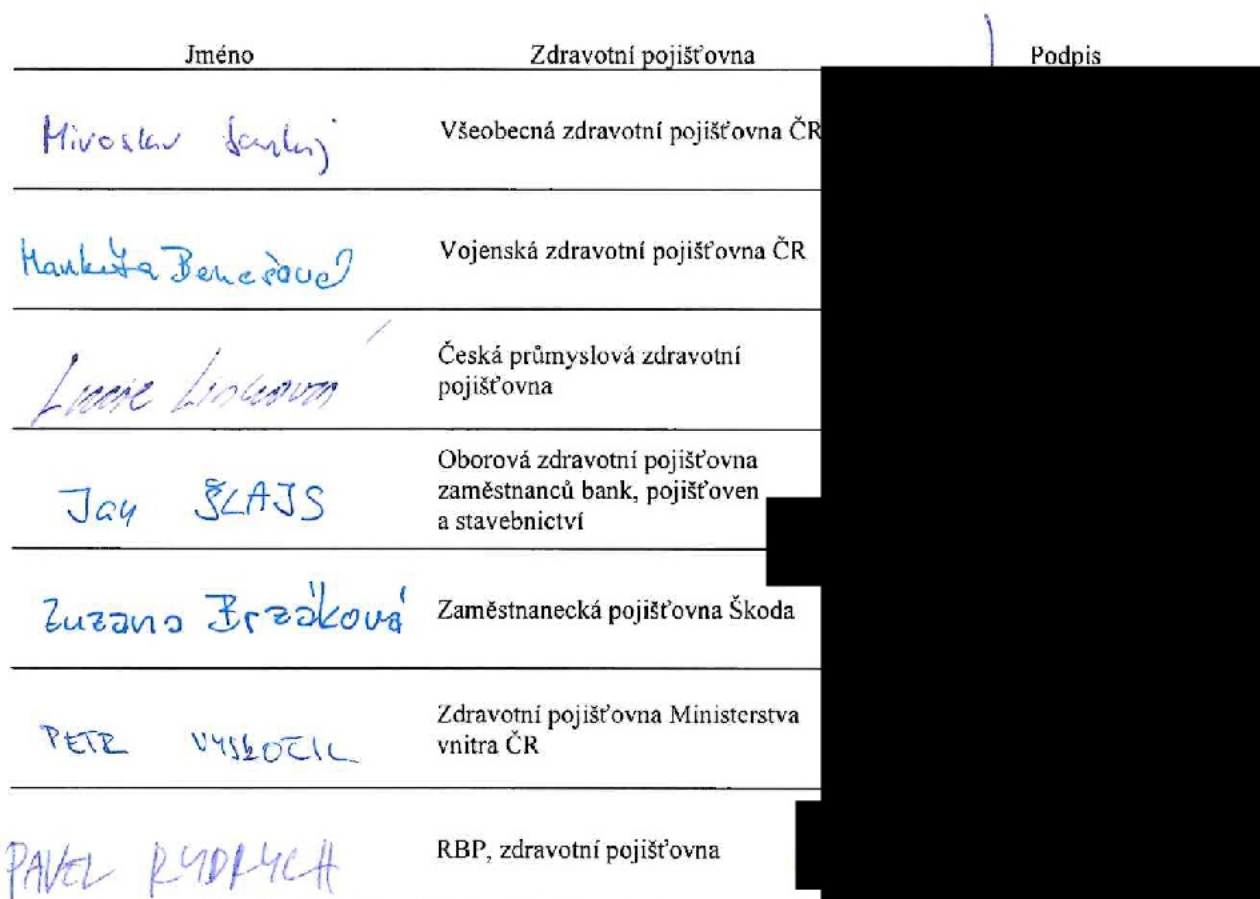 Jméno Zdravotní pojišťovna Podpis
Miroslav Všeobecná zdravotní pojišťovna ČR
Markéta Benešová Vojenská zdravotní pojišťovna ČR
Česká průmyslová zdravotní
pojišťovna
Oborová zdravotní pojišťovna
Jan ŠLAJS zaměstnanců bank, pojišťoven
a stavebnictví
Zuzana Brzáková Zaměstnanecká pojišťovna Škoda
Zdravotní pojišťovna Ministerstva
PETR VYSKOČIL vnitra ČR
PAVEL RYDRYCH RBP, zdravotní pojišťovna